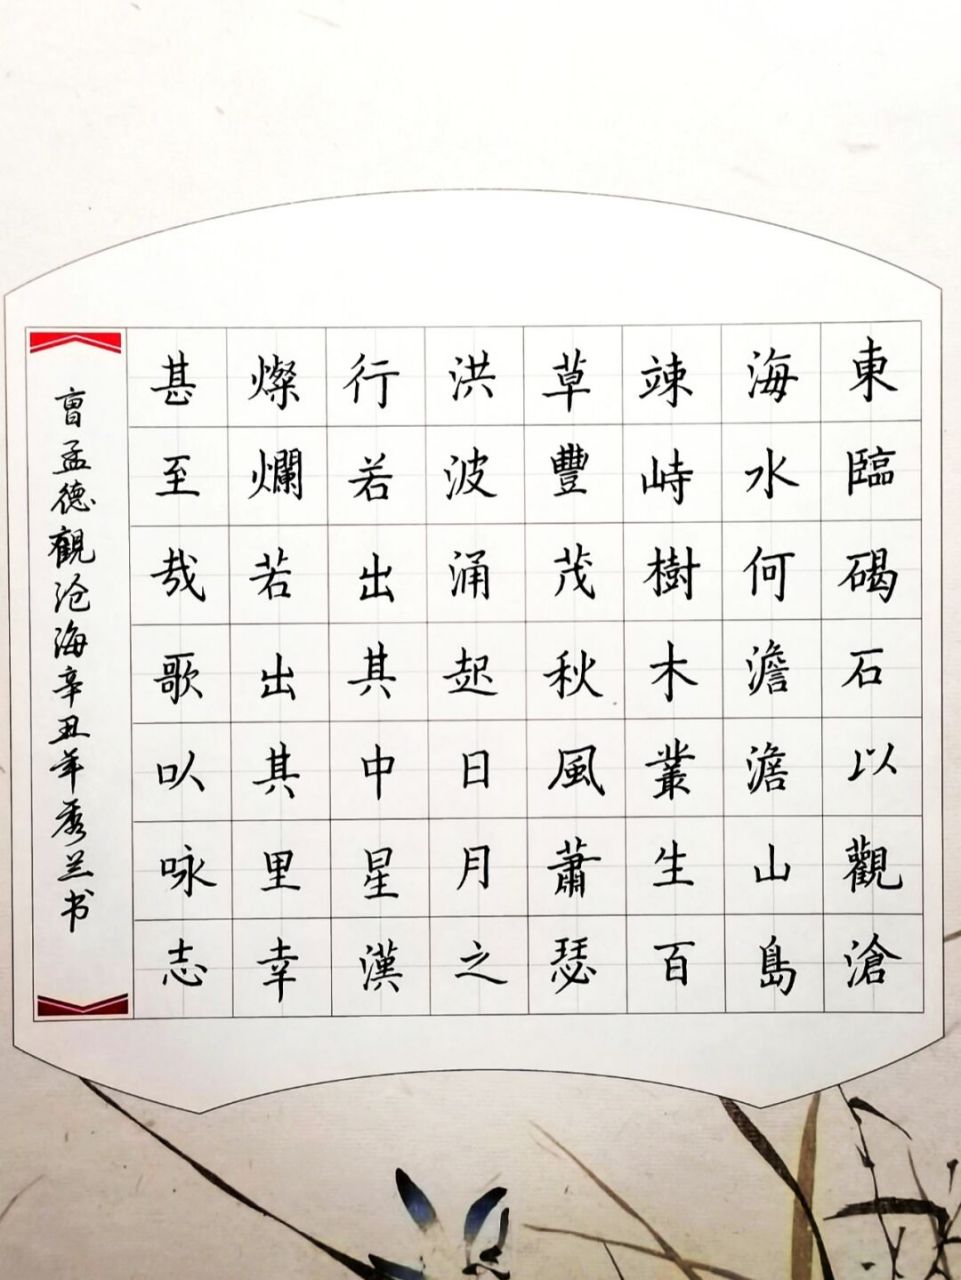 東臨碣石以觀滄
海水何澹澹山島
竦峙樹木叢生百
草豐茂秋風蕭瑟
洪波涌起日月之
行若出其中星漢
燦爛若出其里幸
甚至哉歌以咏志
曹孟德觀沧海辛丑年秀兰书